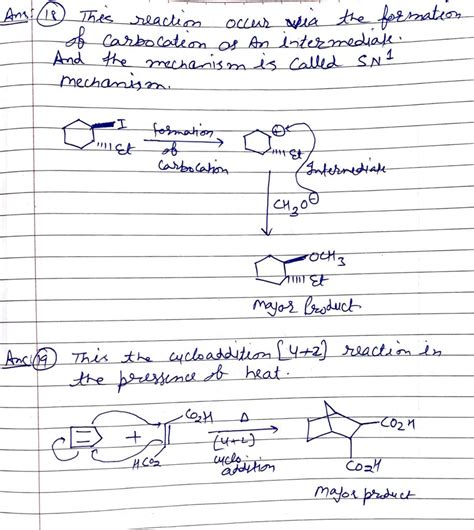 Ans: 18 This reaction occur via the formation
of carbocation as An intermediate.
And the mechanism is called SN1
mechanism.
I
Et
formation
of
carbocation
⊕
Et
Intermediate
CH3O⊖
OCH3
Et
Major Product
Ans: 19 This the cycloaddition [4+2] reaction in
the pressence of heat.
+
CO2H
HCO2
Δ
[4+2]
cyclo
addition
CO2H
CO2H
Major product